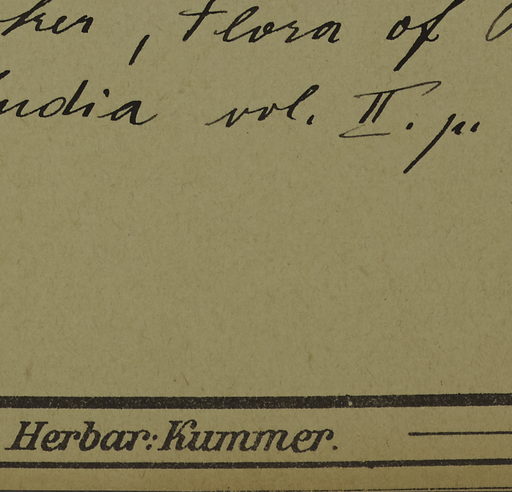 ker, Flora of
India vol. II. p.
Herbar: Kummer.